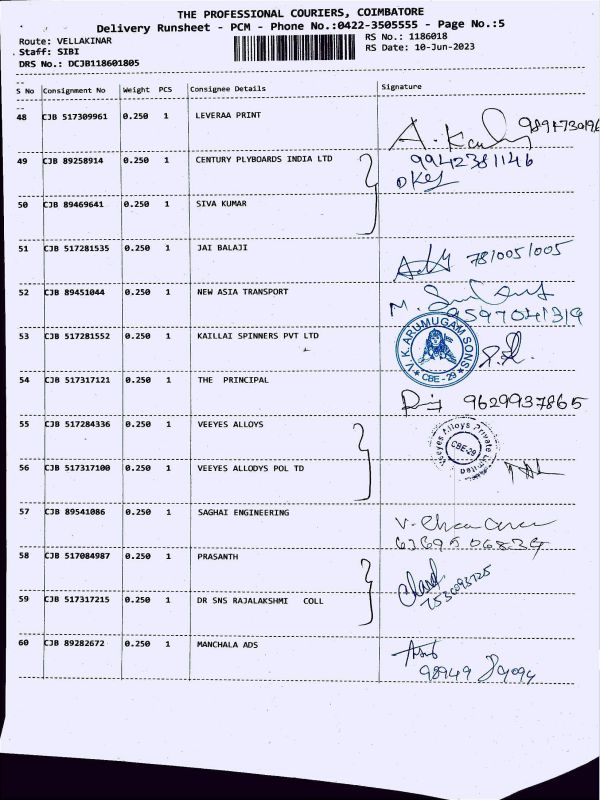 THE PROFESSIONAL COURIERS, COIMBATORE
Delivery Runsheet - PCM - Phone No.:0422-3505555 - Page No.:5
Route: VELLAKINAR RS No.: 1186018
Staff: SIBI RS Date: 10-Jun-2023
DRS No.: DCJB118601805
S No Consignment No Weight PCS Consignee Details Signature
48 CJB 517309961 0.250 1 LEVERAA PRINT
49 CJB 89258914 0.250 1 CENTURY PLYBOARDS INDIA LTD 9942381146
50 CJB 89469641 0.250 1 SIVA KUMAR
51 CJB 517281535 0.250 1 JAI BALAJI 7810051005
52 CJB 89451044 0.250 1 NEW ASIA TRANSPORT 9597041319
53 CJB 517281552 0.250 1 KAILLAI SPINNERS PVT LTD V.K. ARUMUGAM SONS CBE-29
54 CJB 517317121 0.250 1 THE PRINCIPAL 9629937865
55 CJB 517284336 0.250 1 VEEYES ALLOYS Veeyes Alloys Private Limited CBE-29
56 CJB 517317100 0.250 1 VEEYES ALLODYS POL TD
57 CJB 89541086 0.250 1 SAGHAI ENGINEERING
58 CJB 517084987 0.250 1 PRASANTH
59 CJB 517317215 0.250 1 DR SNS RAJALAKSHMI COLL
60 CJB 89282672 0.250 1 MANCHALA ADS